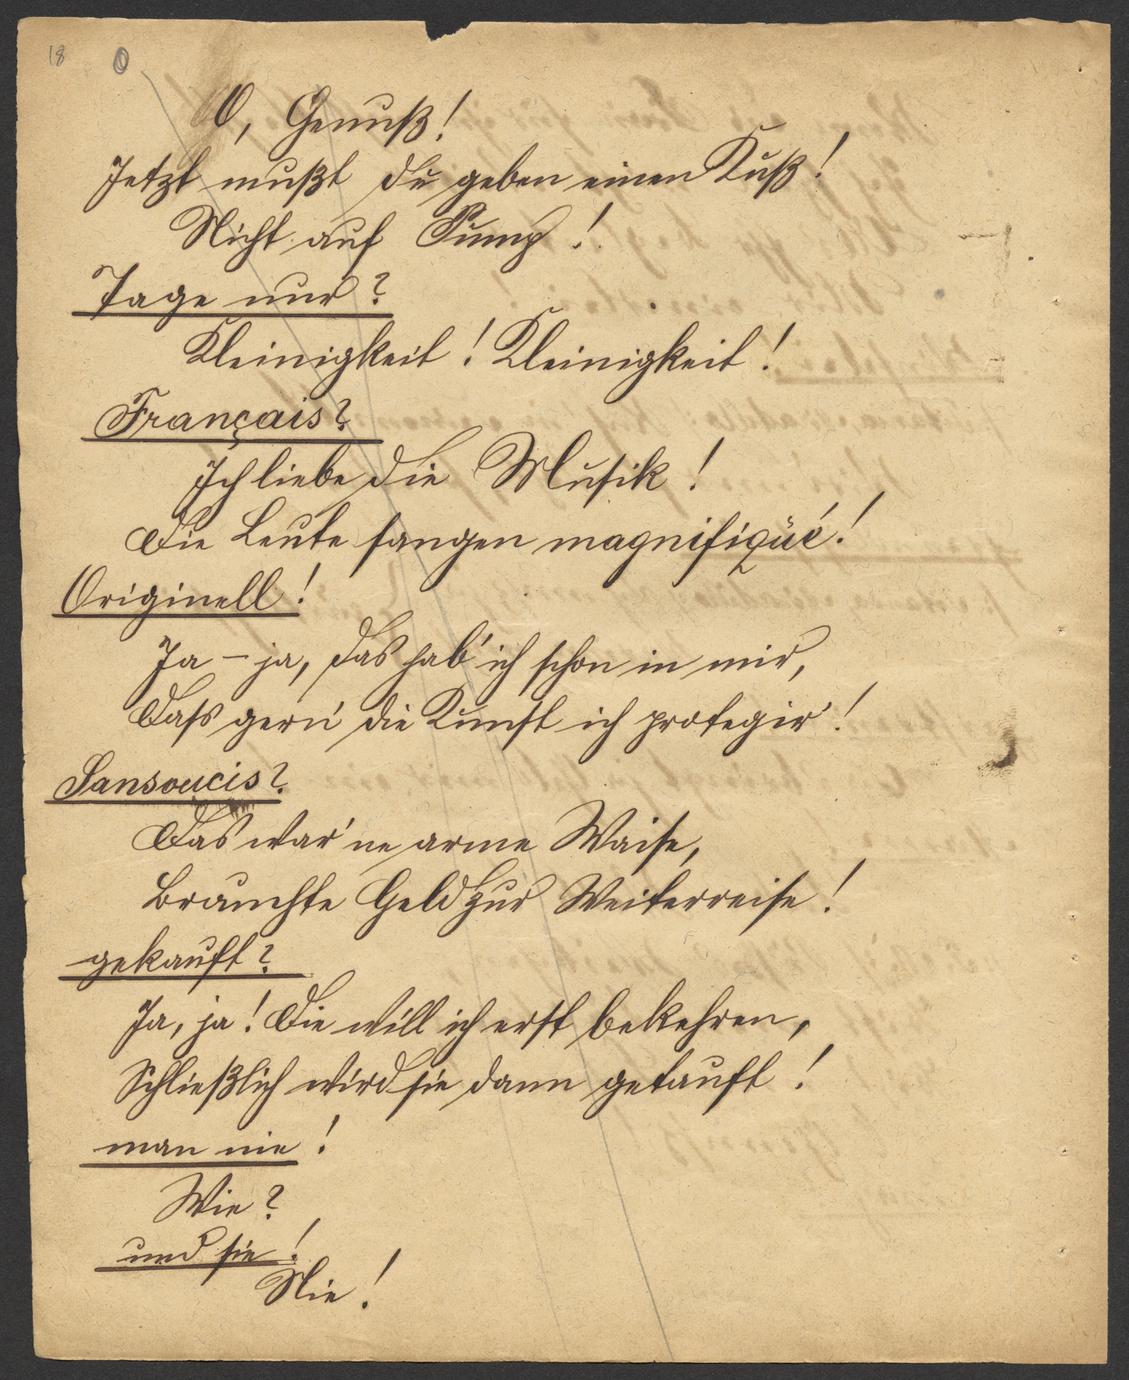 18 0
O, Genuß!
Jetzt mußt du geben einen Kuß!
Nicht auf Pump!
Tage nur?
Kleinigkeit! Kleinigkeit!
Français?
Ich liebe die Musik!
Die Leute sangen magnifiqué!
Originell!
Ja – ja, das hab' ich schon in mir,
Dass gern' die Kunst ich protegir'!
Sansoucis?
Das war 'ne arme Waise,
Brauchte Geld zur Weiterreise!
gekauft?
Ja, ja! Die will ich erst bekehren,
Schließlich wird sie dann getauft!
man nie!
Wie?
und sie!
Nie!